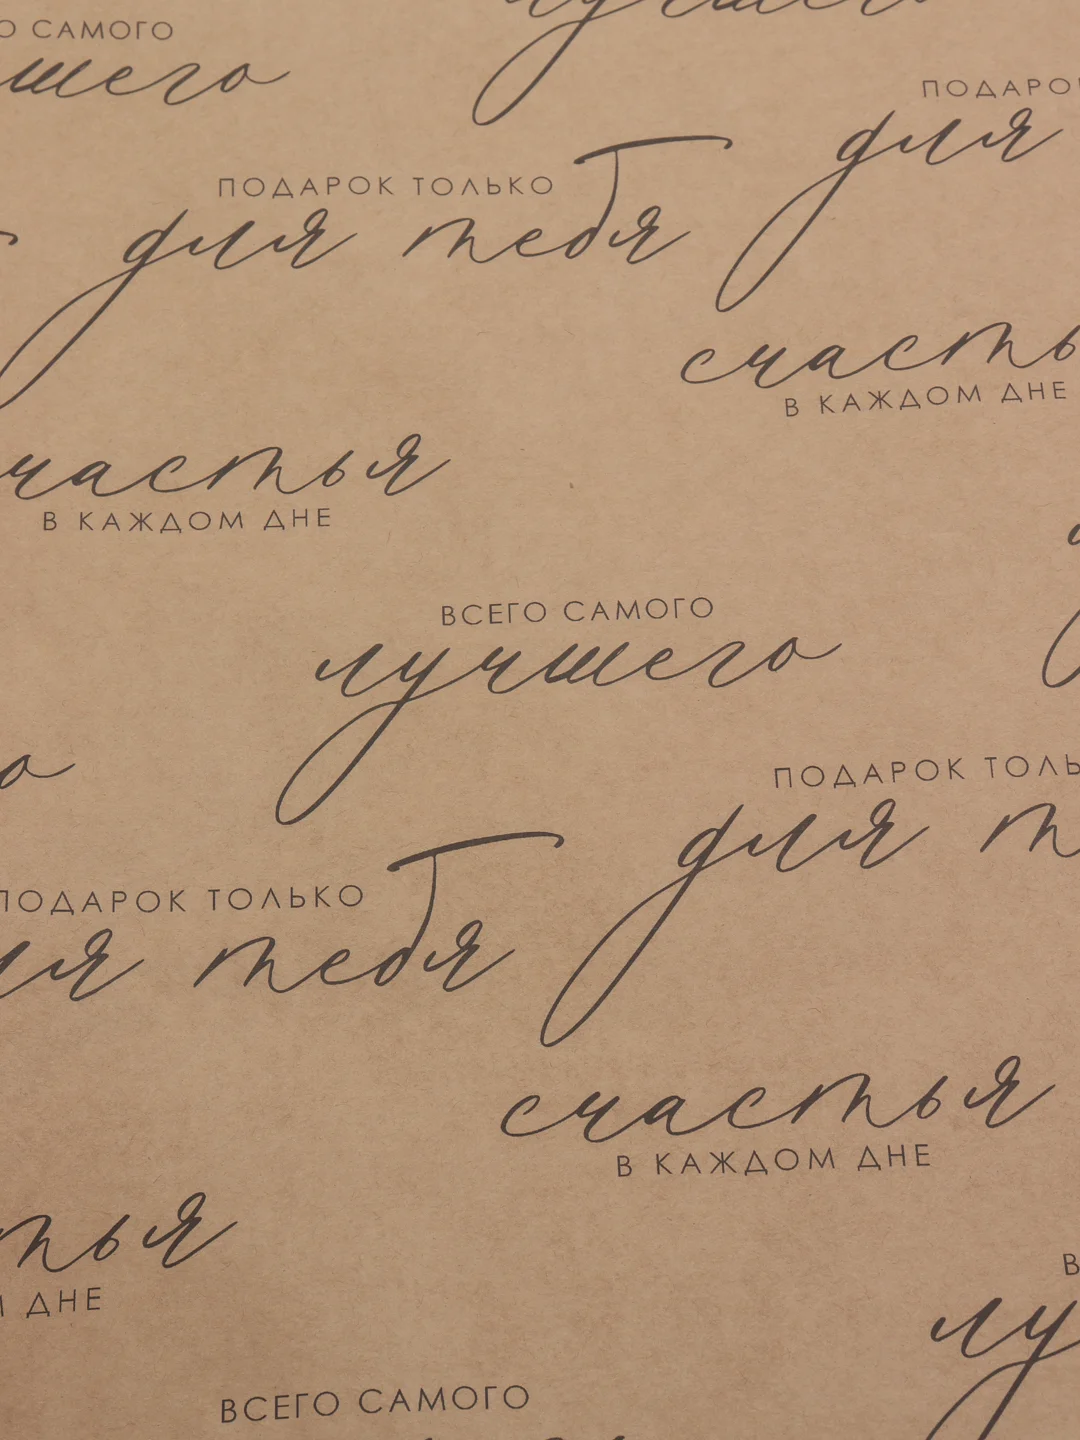 САМОГО
лучшего
ПОДАРОК
для
ПОДАРОК ТОЛЬКО
для тебя
счастья
В КАЖДОМ ДНЕ
счастья
В КАЖДОМ ДНЕ
ВСЕГО САМОГО
лучшего
ПОДАРОК ТОЛЬ
для
ПОДАРОК ТОЛЬКО
для тебя
счастья
В КАЖДОМ ДНЕ
тья
ДНЕ
лу
ВСЕГО САМОГО